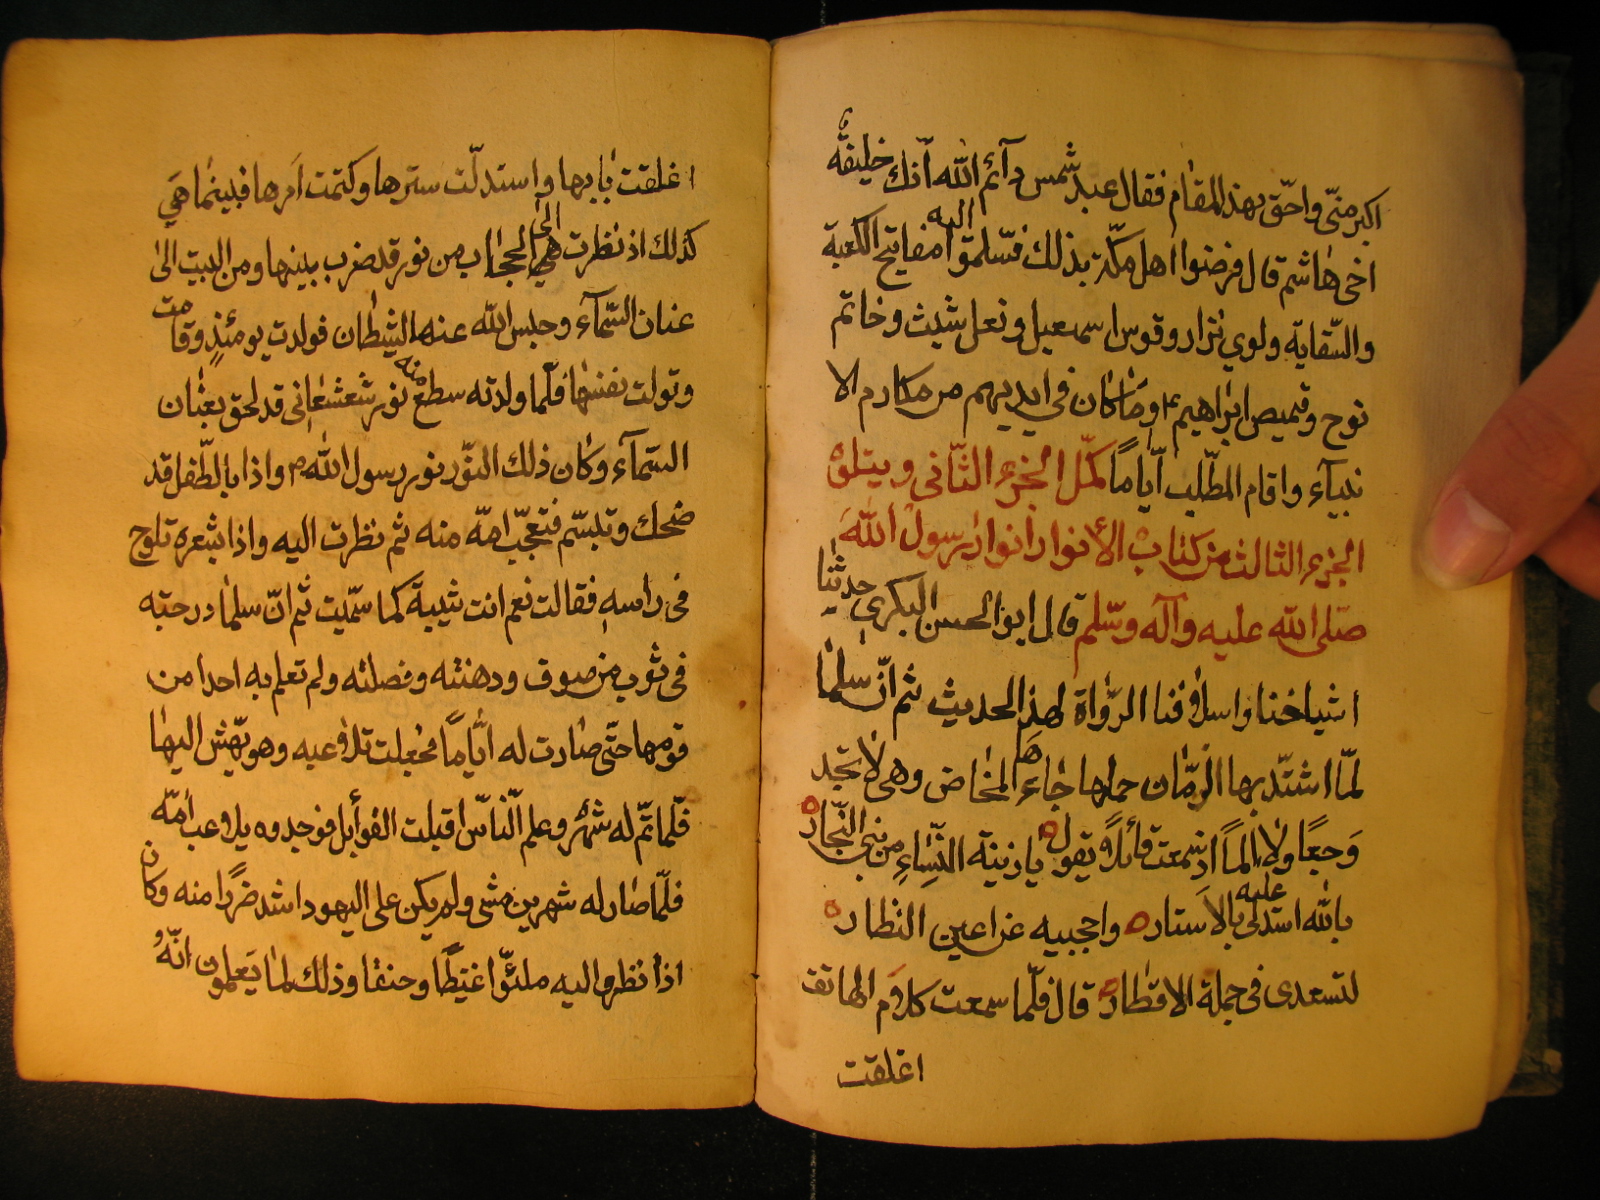 اكبر منّى واحّق بهذ المقام فقال عبد شمس وآئم الله آنك خليفة
اخى هاشم قال فرضوا اهل مكّة بذلك فسّلموا اليه مفاتيح الكعبة
والسّقاية ولوي نزار وقوس اسمعيل ونعل شيث وخاتم
نوح وقميص ابراهيم ع وما كان فى ايديهم من مكارم الا
نبيآء واقام المطّلب آيّاماً كمّل الجزء الثّانى ويتلوه
الجزء الثالث من كتاب الأنوار أنوار رسول الله
صّلى الله عليه وآله وسّلم قال ابو الحسن البكرى حدثنا
اشياخنا واسلافنا الرّواة لهذ الحديث ثم انّ سلما
لمّا اشتدّ بها الزمّان حملها جاءها المخاض وهى لا تجد
وَجعًا ولا الماً اذ سمعت قائلاً يقول يا زينة النّساءِ من بنى النّجار
بالله استدلى عليه بالاستار واحجبيه عن اعين النظار
لتسعدى فى جملة الاقطار قال فلّما سمعت كلام الهاتف
اغلقت
اغلقت بابها واستدلّت سترها وكتمت اَمرها فبينما هَي
كذلك اذ نظرت هي الى الحجاب من نور قد ضرب بينها ومن البيت الىٰ
عنان السّمآء وحبس الله عنه الشيطان فولدت يومئذٍ وقامت
وتولت نفسها فلّما ولدته سطع منه نور شعشعانى قد لحق بعنان
السّمآء وكان ذلك النوّر نور رسول الله ص واذا بالطّفل قد
ضحك وتبسّم فتعجّبت امّه منه ثم نظرت اليه واذا شعرة تلوح
فى راسه فقالت نعم انت شيبة كما سمّيت ثم انّ سلما درجته
فى ثوب من صوف ودهنته وفصلته ولم تعلم به احدا من
قومها حتّى صارت له آيّاماً فجعلت تلاعبه وهو يهّش اليها
فلّما تمّ له شهر وعلم النّاس اقبلت القوابل فوجدوه يلاعب امّه
فلّما صار له شهرين مشى ولم يكن على اليهود اشد ضرًا منه وكان
اذا نظروا اليه ملئوّا غيظًا وحنقا وذلك لما يَعلمون انّهُ